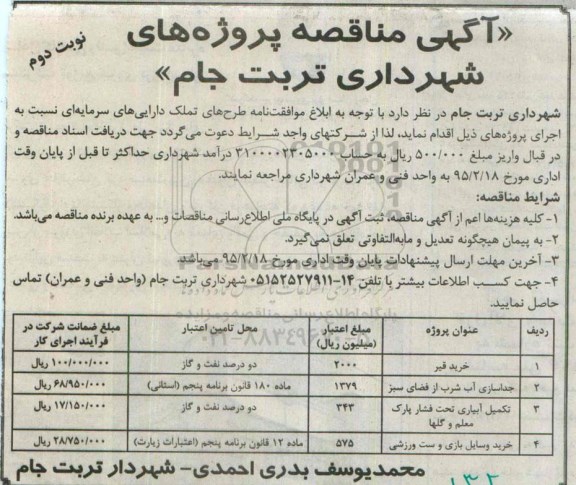 «آگهی مناقصه پروژه‌های
شهرداری تربت جام»
نوبت دوم
شهرداری تربت جام در نظر دارد با توجه به ابلاغ موافقت‌نامه طرح‌های تملک دارایی‌های سرمایه‌ای نسبت به
اجرای پروژه‌های ذیل اقدام نماید، لذا از شرکتهای واجد شرایط دعوت می‌گردد جهت دریافت اسناد مناقصه و
در قبال واریز مبلغ ۵۰۰/۰۰۰ ریال به حساب ۳۱۰۰۰۰۲۳۰۵۰۰۰ درآمد شهرداری حداکثر تا قبل از پایان وقت
اداری مورخ ۹۵/۲/۱۸ به واحد فنی و عمران شهرداری مراجعه نمایند.
شرایط مناقصه:
۱- کلیه هزینه‌ها اعم از آگهی مناقصه، ثبت آگهی در پایگاه ملی اطلاع‌رسانی مناقصات و... به عهده برنده مناقصه می‌باشد.
۲- به پیمان هیچگونه تعدیل و مابه‌التفاوتی تعلق نمی‌گیرد.
۳- آخرین مهلت ارسال پیشنهادات پایان وقت اداری مورخ ۹۵/۲/۱۸ می‌باشد.
۴- جهت کسب اطلاعات بیشتر با تلفن ۱۴-۰۵۱۵۲۵۲۷۹۱۱ شهرداری تربت جام (واحد فنی و عمران) تماس
حاصل نمایید.
ردیف عنوان پروژه مبلغ اعتبار (میلیون ریال) محل تامین اعتبار مبلغ ضمانت شرکت در فرآیند اجرای کار
۱ خرید قیر ۲۰۰۰ دو درصد نفت و گاز ۱۰۰/۰۰۰/۰۰۰ ریال
۲ جداسازی آب شرب از فضای سبز ۱۳۷۹ ماده ۱۸۰ قانون برنامه پنجم (استانی) ۶۸/۹۵۰/۰۰۰ ریال
۳ تکمیل آبیاری تحت فشار پارک معلم و گلها ۳۴۳ دو درصد نفت و گاز ۱۷/۱۵۰/۰۰۰ ریال
۴ خرید وسایل بازی و ست ورزشی ۵۷۵ ماده ۱۲ قانون برنامه پنجم (اعتبارات زیارت) ۲۸/۷۵۰/۰۰۰ ریال
محمدیوسف بدری احمدی- شهردار تربت جام